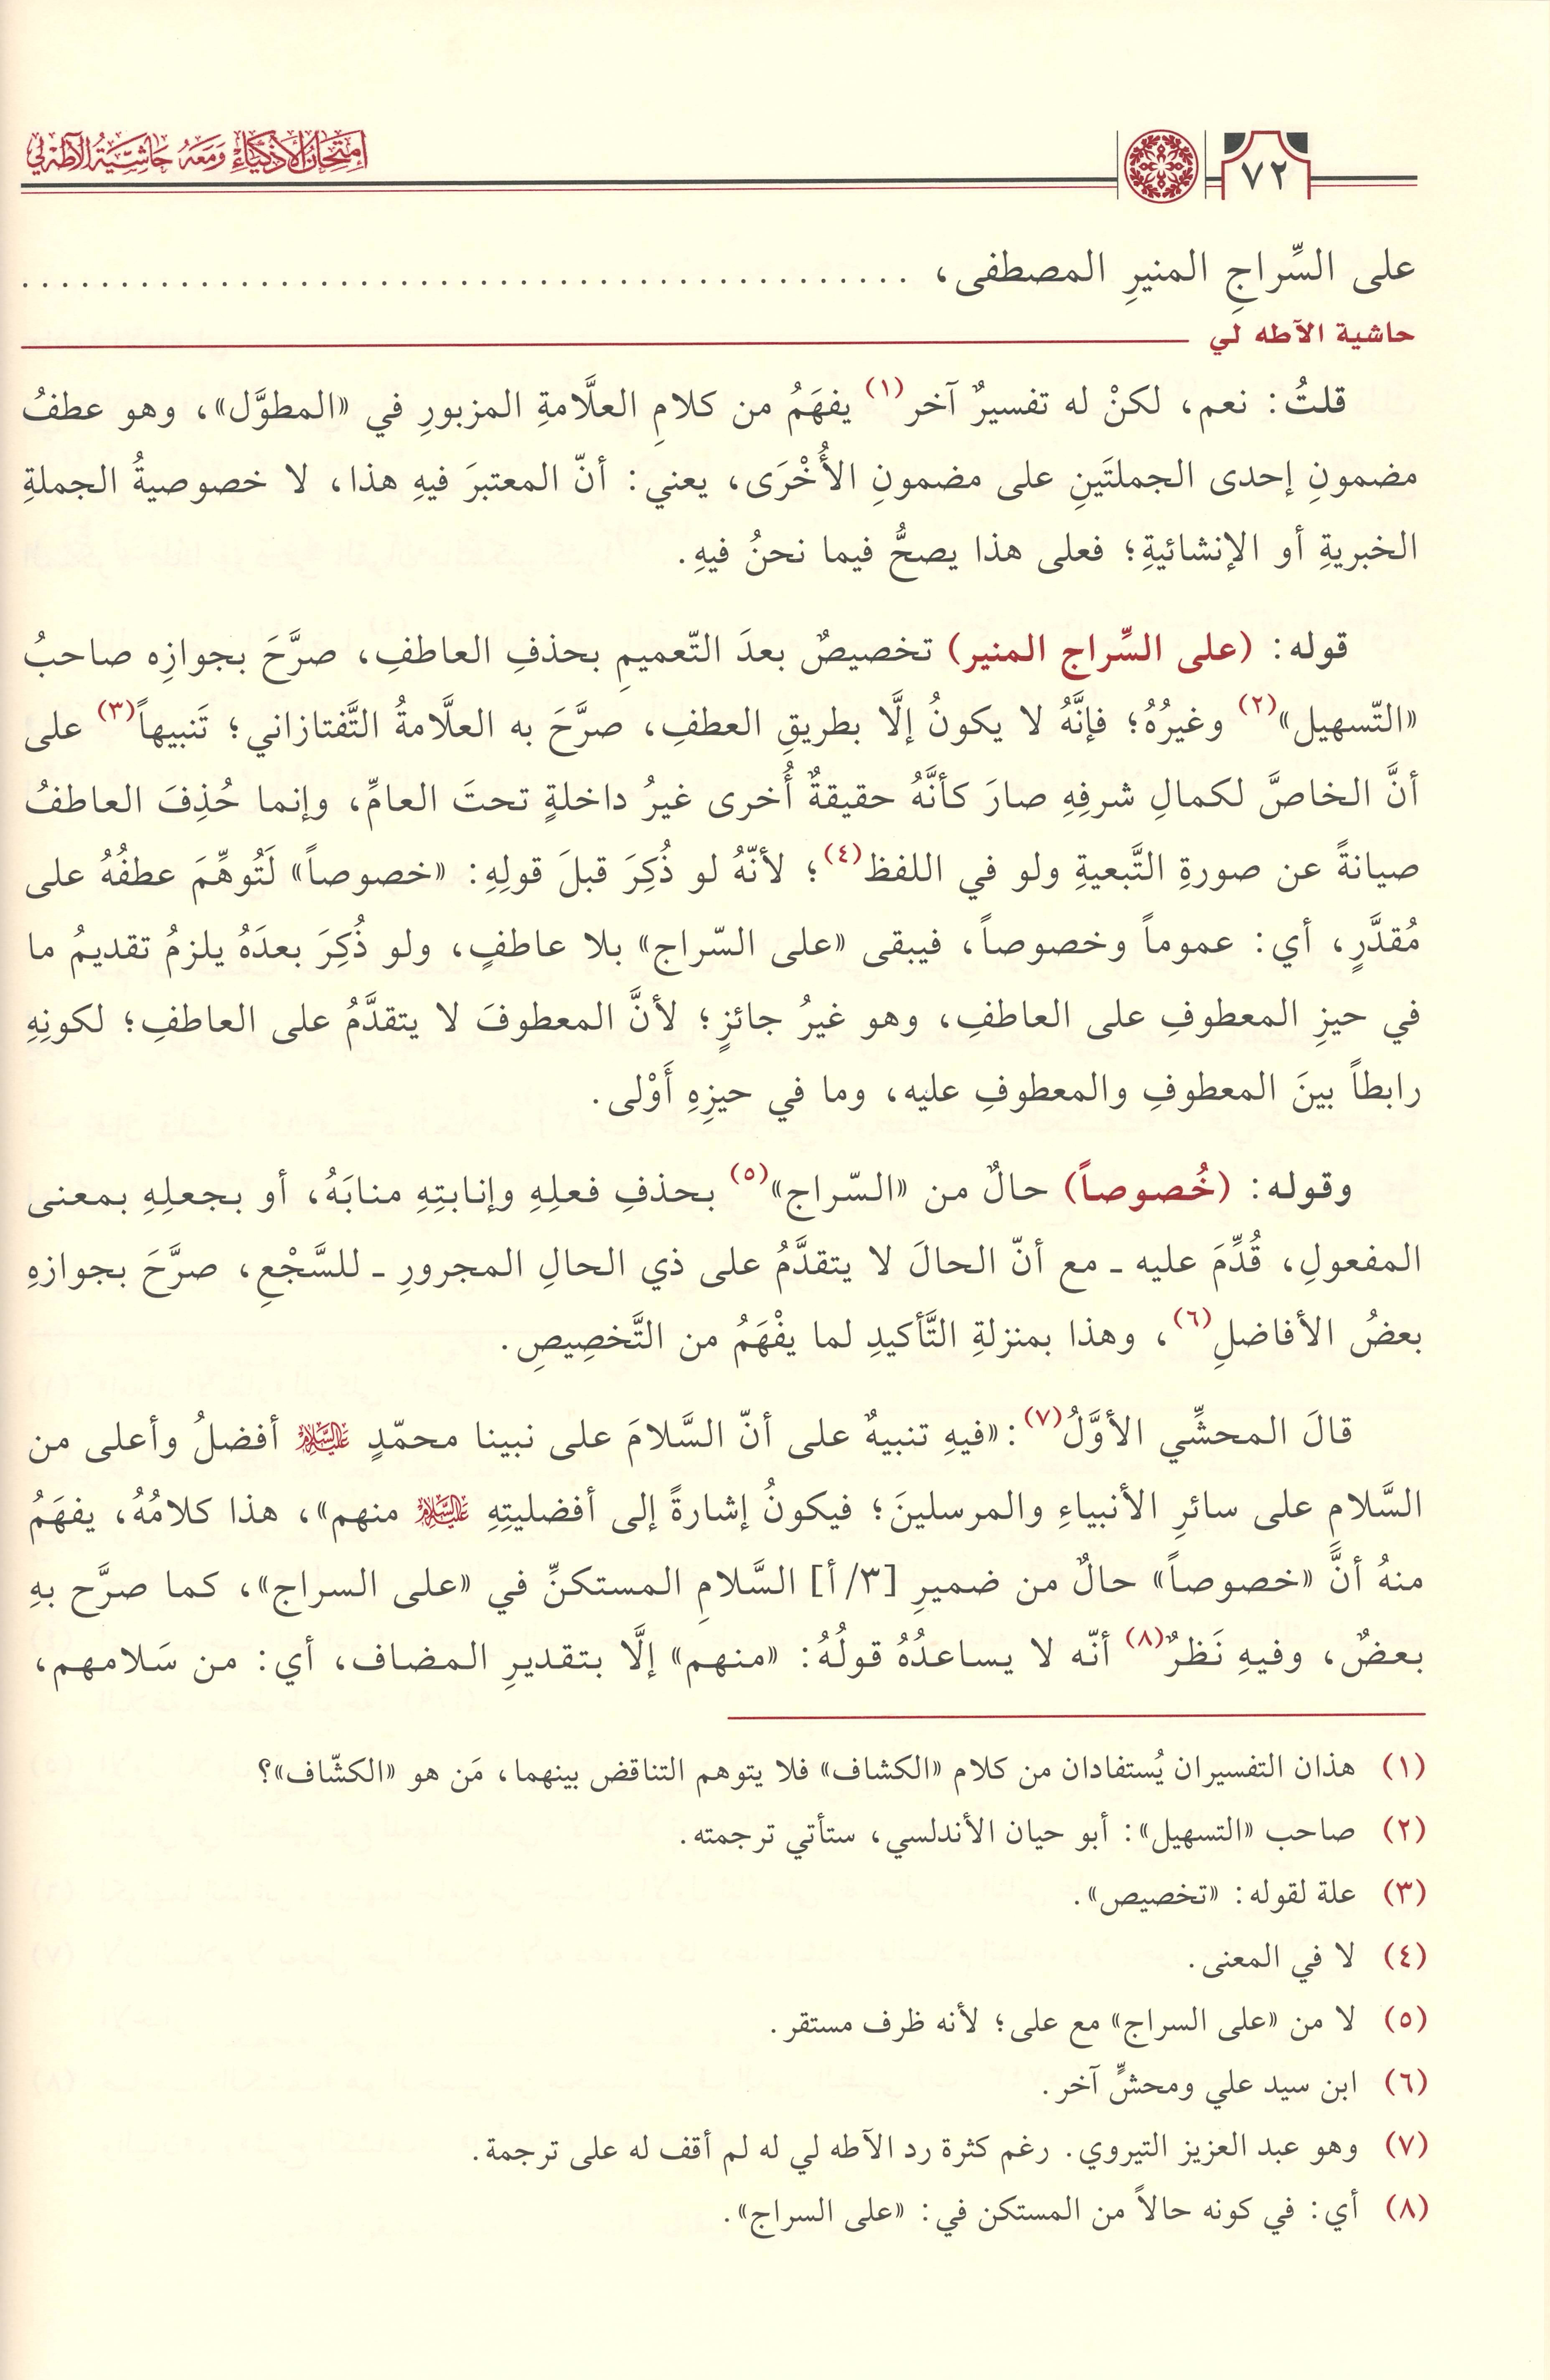 إمتحان الأذكياء ومعه حاشية الآطه لي
٧٢
على السِّراجِ المنيرِ المصطفى، ............................................
حاشية الآطه لي
قلتُ: نعم، لكنْ له تفسيرٌ آخر(١) يفهَمُ من كلامِ العلَّامةِ المزبورِ في «المطوَّل»، وهو عطفُ
مضمونِ إحدى الجملتَينِ على مضمونِ الأُخْرَى، يعني: أنّ المعتبرَ فيهِ هذا، لا خصوصيةُ الجملةِ
الخبريةِ أو الإنشائيةِ؛ فعلى هذا يصحُّ فيما نحنُ فيهِ.
قوله: (على السِّراج المنير) تخصيصٌ بعدَ التّعميمِ بحذفِ العاطفِ، صرَّحَ بجوازِه صاحبُ
«التّسهيل»(٢) وغيرُهُ؛ فإنَّهُ لا يكونُ إلَّا بطريقِ العطفِ، صرَّحَ به العلَّامةُ التَّفتازاني؛ تَنبيهاً(٣) على
أنَّ الخاصَّ لكمالِ شرفِهِ صارَ كأنَّهُ حقيقةٌ أُخرى غيرُ داخلةٍ تحتَ العامِّ، وإنما حُذِفَ العاطفُ
صيانةً عن صورةِ التَّبعيةِ ولو في اللفظ(٤)؛ لأنّهُ لو ذُكِرَ قبلَ قولِهِ: «خصوصاً» لَتُوهِّمَ عطفُهُ على
مُقدَّرٍ، أي: عموماً وخصوصاً، فيبقى «على السّراج» بلا عاطفٍ، ولو ذُكِرَ بعدَهُ يلزمُ تقديمُ ما
في حيزِ المعطوفِ على العاطفِ، وهو غيرُ جائزٍ؛ لأنَّ المعطوفَ لا يتقدَّمُ على العاطفِ؛ لكونِهِ
رابطاً بينَ المعطوفِ والمعطوفِ عليه، وما في حيزِهِ أَوْلى.
وقوله: (خُصوصاً) حالٌ من «السّراج»(٥) بحذفِ فعلِهِ وإنابتِهِ منابَهُ، أو بجعلِهِ بمعنى
المفعولِ، قُدِّمَ عليه ـ مع أنّ الحالَ لا يتقدَّمُ على ذي الحالِ المجرورِ ـ للسَّجْعِ، صرَّحَ بجوازهِ
بعضُ الأفاضلِ(٦)، وهذا بمنزلةِ التَّأكيدِ لما يفْهَمُ من التَّخصِيصِ.
قالَ المحشِّي الأوَّلُ(٧): «فيهِ تنبيهٌ على أنّ السَّلامَ على نبينا محمّدٍ عليه السلام أفضلُ وأعلى من
السَّلامِ على سائرِ الأنبياءِ والمرسلينَ؛ فيكونُ إشارةً إلى أفضليتِهِ عليه السلام منهم»، هذا كلامُهُ، يفهَمُ
منهُ أنَّ «خصوصاً» حالٌ من ضميرِ [٣/ أ] السَّلامِ المستكنِّ في «على السراج»، كما صرَّح بهِ
بعضٌ، وفيهِ نَظرٌ(٨) أنّه لا يساعدُهُ قولُهُ: «منهم» إلَّا بتقديرِ المضاف، أي: من سَلامهم،
(١) هذان التفسيران يُستفادان من كلام «الكشاف» فلا يتوهم التناقض بينهما، مَن هو «الكشّاف»؟
(٢) صاحب «التسهيل»: أبو حيان الأندلسي، ستأتي ترجمته.
(٣) علة لقوله: «تخصيص».
(٤) لا في المعنى.
(٥) لا من «على السراج» مع على؛ لأنه ظرف مستقر.
(٦) ابن سيد علي ومحشٍّ آخر.
(٧) وهو عبد العزيز التيروي. رغم كثرة رد الآطه لي له لم أقف له على ترجمة.
(٨) أي: في كونه حالاً من المستكن في: «على السراج».